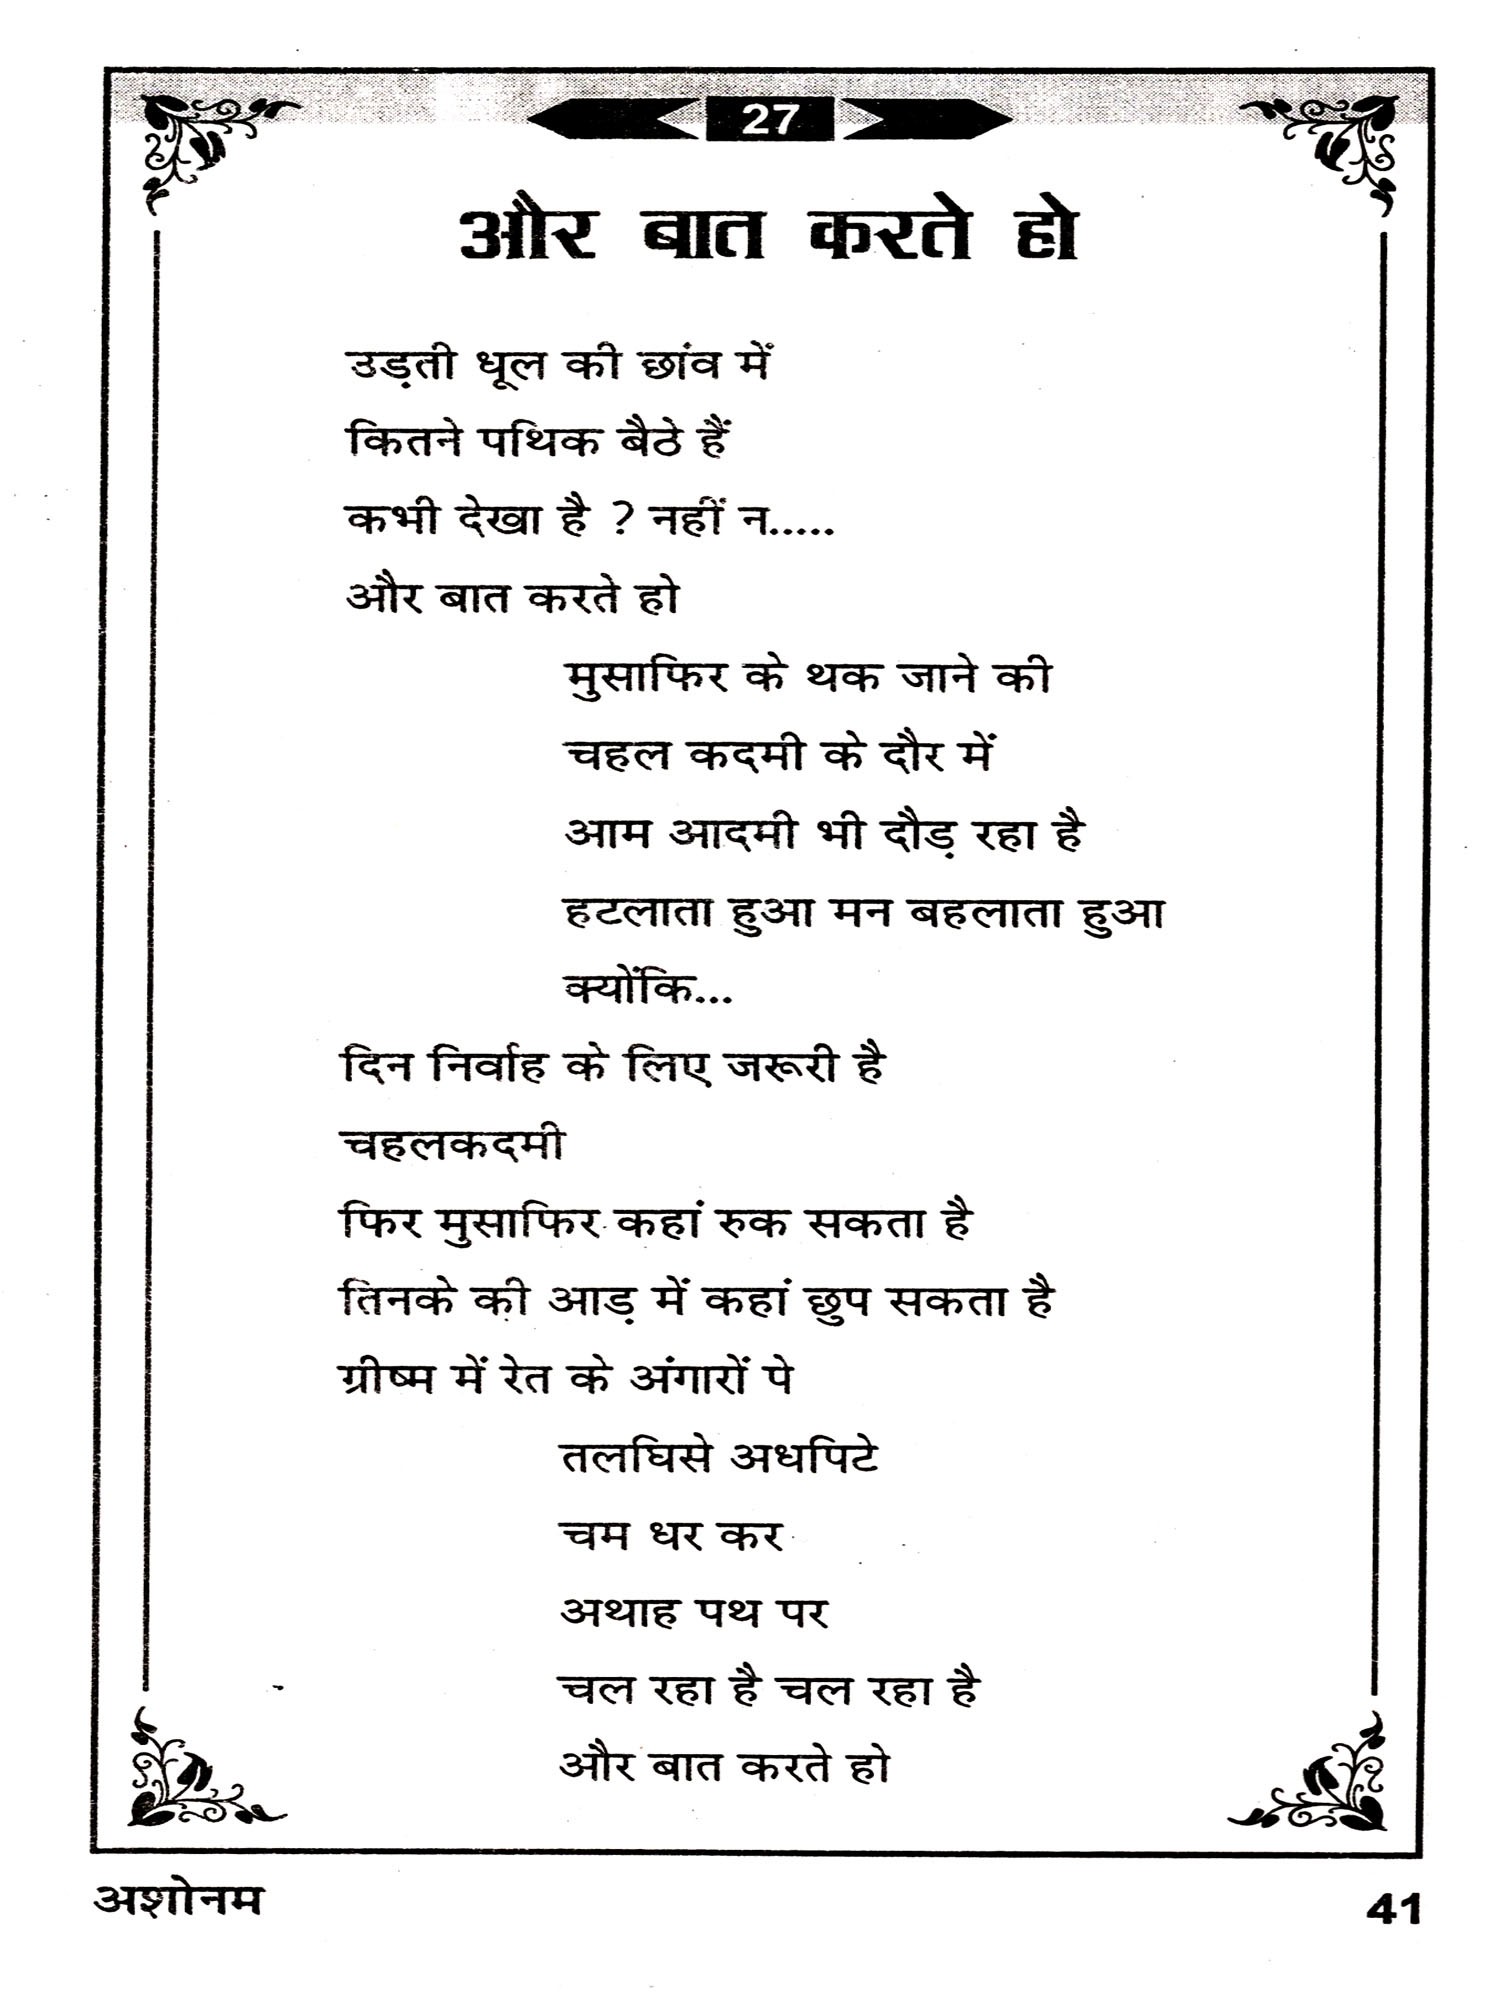 27
और बात करते हो
उड़ती धूल की छांव में
कितने पथिक बैठे हैं
कभी देखा है ? नहीं न.....
और बात करते हो
मुसाफिर के थक जाने की
चहल कदमी के दौर में
आम आदमी भी दौड़ रहा है
हटलाता हुआ मन बहलाता हुआ
क्योंकि...
दिन निर्वाह के लिए जरूरी है
चहलकदमी
फिर मुसाफिर कहां रुक सकता है
तिनके की आड़ में कहां छुप सकता है
ग्रीष्म में रेत के अंगारों पे
तलघिसे अधपिटे
चम धर कर
अथाह पथ पर
चल रहा है चल रहा है
और बात करते हो
अशोनम
41